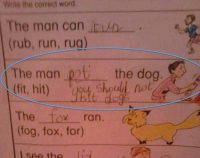 Write the correct word.
The man can run.
(rub, run, rug)
The man pet the dog.
(fit, hit) you should not
hit dogs
The fox ran.
(fog, fox, for)
I see the